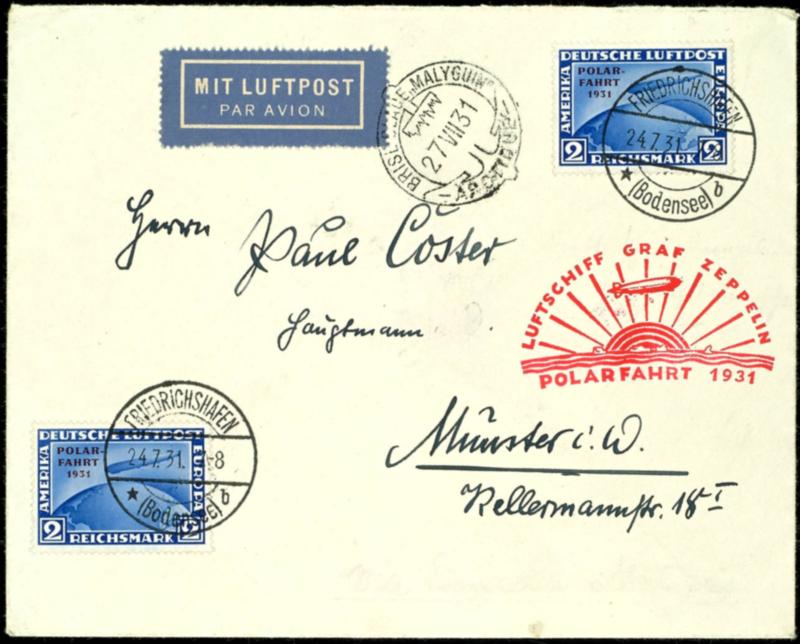 MIT LUFTPOST
PAR AVION
BRISE GLACE „MALYGUIN"
27 VII 31
DEUTSCHE LUFTPOST
AMERIKA
EUROPA
POLAR-
FAHRT
1931
2 REICHSMARK 2
FRIEDRICHSHAFEN
24.7.31.
(Bodensee) d
Herrn Paul Cöster
Hauptmann
LUFTSCHIFF GRAF ZEPPELIN
POLARFAHRT 1931
Münster i. W.
Kellermannstr. 18 I
DEUTSCHE LUFTPOST
AMERIKA
EUROPA
POLAR-
FAHRT
1931
2 REICHSMARK 2
FRIEDRICHSHAFEN
24.7.31. -8
(Bodensee) b